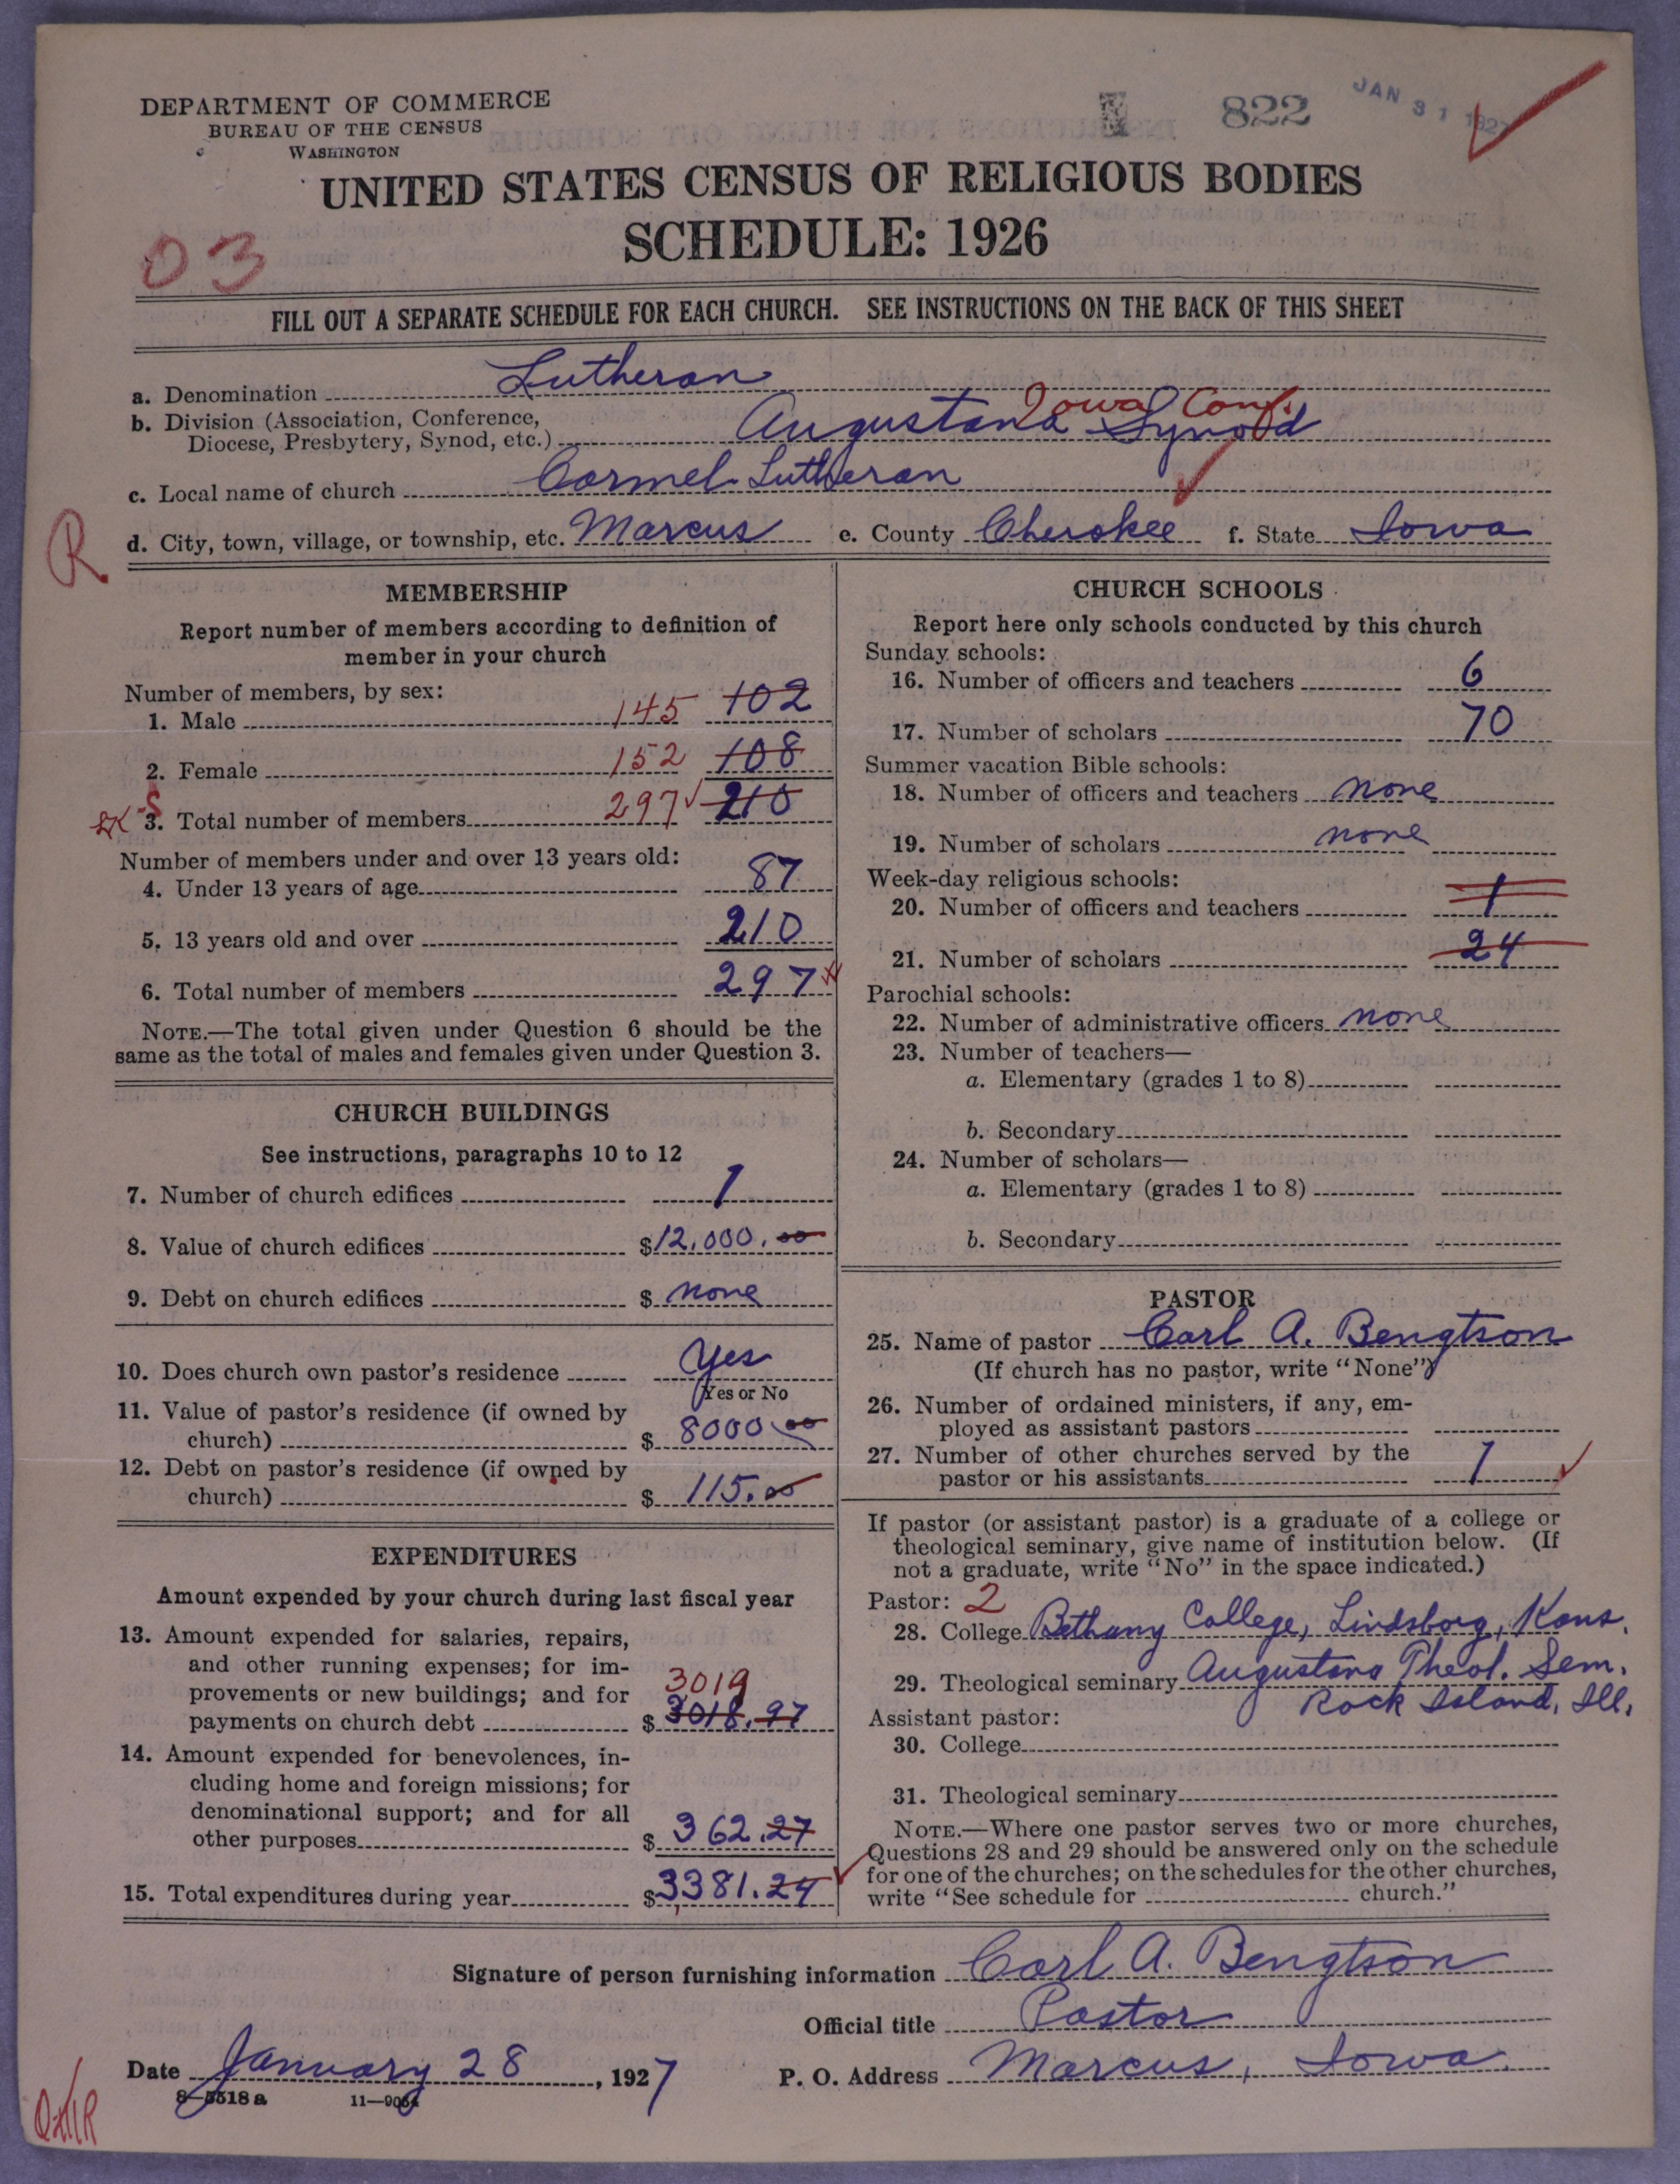 DEPARTMENT OF COMMERCE
BUREAU OF THE CENSUS
WASHINGTON
822
JAN 31 1927
UNITED STATES CENSUS OF RELIGIOUS BODIES
SCHEDULE: 1926
03
FILL OUT A SEPARATE SCHEDULE FOR EACH CHURCH. SEE INSTRUCTIONS ON THE BACK OF THIS SHEET
a. Denomination Lutheran
Iowa Conf.
b. Division (Association, Conference,
Diocese, Presbytery, Synod, etc.) Augustana Synod
c. Local name of church Carmel Lutheran
R
d. City, town, village, or township, etc. Marcus e. County Cherokee f. State Iowa
MEMBERSHIP
Report number of members according to definition of
member in your church
Number of members, by sex:
1. Male 145 102
2. Female 152 108
3. Total number of members 297 210
Number of members under and over 13 years old:
4. Under 13 years of age 87
5. 13 years old and over 210
6. Total number of members 297
NOTE.—The total given under Question 6 should be the
same as the total of males and females given under Question 3.
CHURCH BUILDINGS
See instructions, paragraphs 10 to 12
7. Number of church edifices 1
8. Value of church edifices $12,000.00
9. Debt on church edifices $ none
10. Does church own pastor's residence Yes
Yes or No
11. Value of pastor's residence (if owned by
church) $ 8000.00
12. Debt on pastor's residence (if owned by
church) $ 115.00
EXPENDITURES
Amount expended by your church during last fiscal year
13. Amount expended for salaries, repairs,
and other running expenses; for im-
provements or new buildings; and for 3019
payments on church debt $ 3018.97
14. Amount expended for benevolences, in-
cluding home and foreign missions; for
denominational support; and for all
other purposes $ 362.27
15. Total expenditures during year $3381.24
CHURCH SCHOOLS
Report here only schools conducted by this church
Sunday schools:
16. Number of officers and teachers 6
17. Number of scholars 70
Summer vacation Bible schools:
18. Number of officers and teachers none
19. Number of scholars none
Week-day religious schools:
20. Number of officers and teachers 1
21. Number of scholars 24
Parochial schools:
22. Number of administrative officers none
23. Number of teachers—
a. Elementary (grades 1 to 8)
b. Secondary
24. Number of scholars—
a. Elementary (grades 1 to 8)
b. Secondary
PASTOR
25. Name of pastor Carl A. Bengtson
(If church has no pastor, write "None")
26. Number of ordained ministers, if any, em-
ployed as assistant pastors
27. Number of other churches served by the
pastor or his assistants 1
If pastor (or assistant pastor) is a graduate of a college or
theological seminary, give name of institution below. (If
not a graduate, write "No" in the space indicated.)
Pastor: 2
28. College Bethany College, Lindsborg, Kans.
29. Theological seminary Augustana Theol. Sem.
Rock Island, Ill.
Assistant pastor:
30. College
31. Theological seminary
NOTE.—Where one pastor serves two or more churches,
Questions 28 and 29 should be answered only on the schedule
for one of the churches; on the schedules for the other churches,
write "See schedule for church."
Signature of person furnishing information Carl A. Bengtson
Official title Pastor
Date January 28, 1927 P. O. Address Marcus, Iowa.
8-5518 a 11-9064